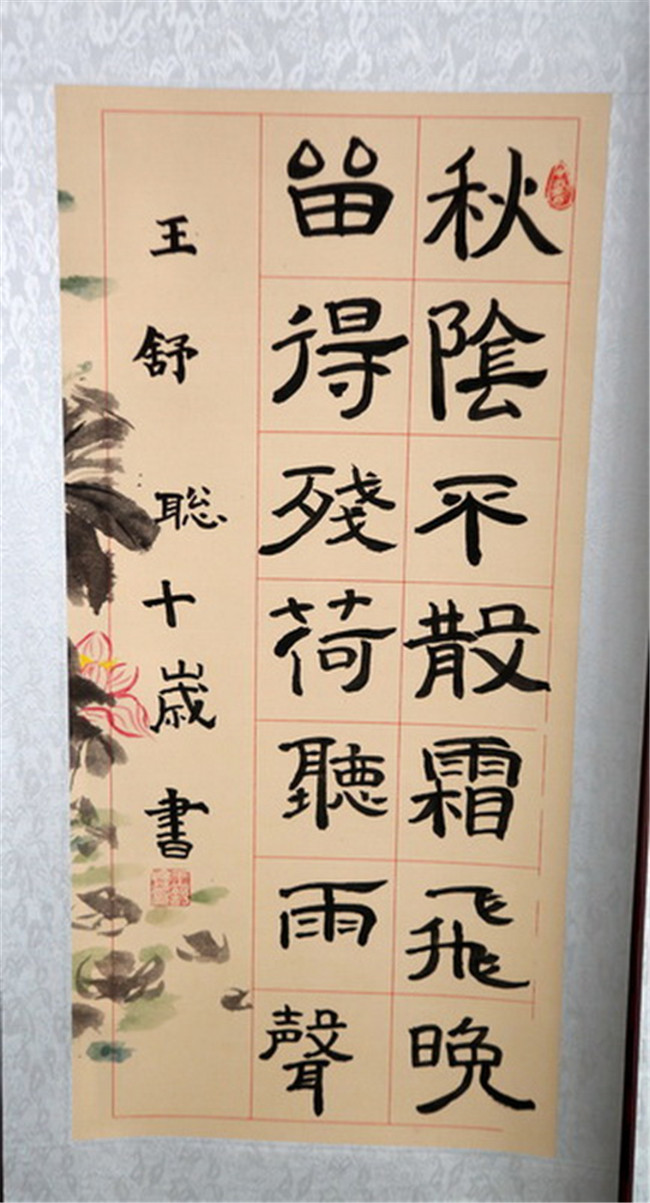 秋陰不散霜飛晚
留得殘荷聽雨聲
王舒聡十歲書